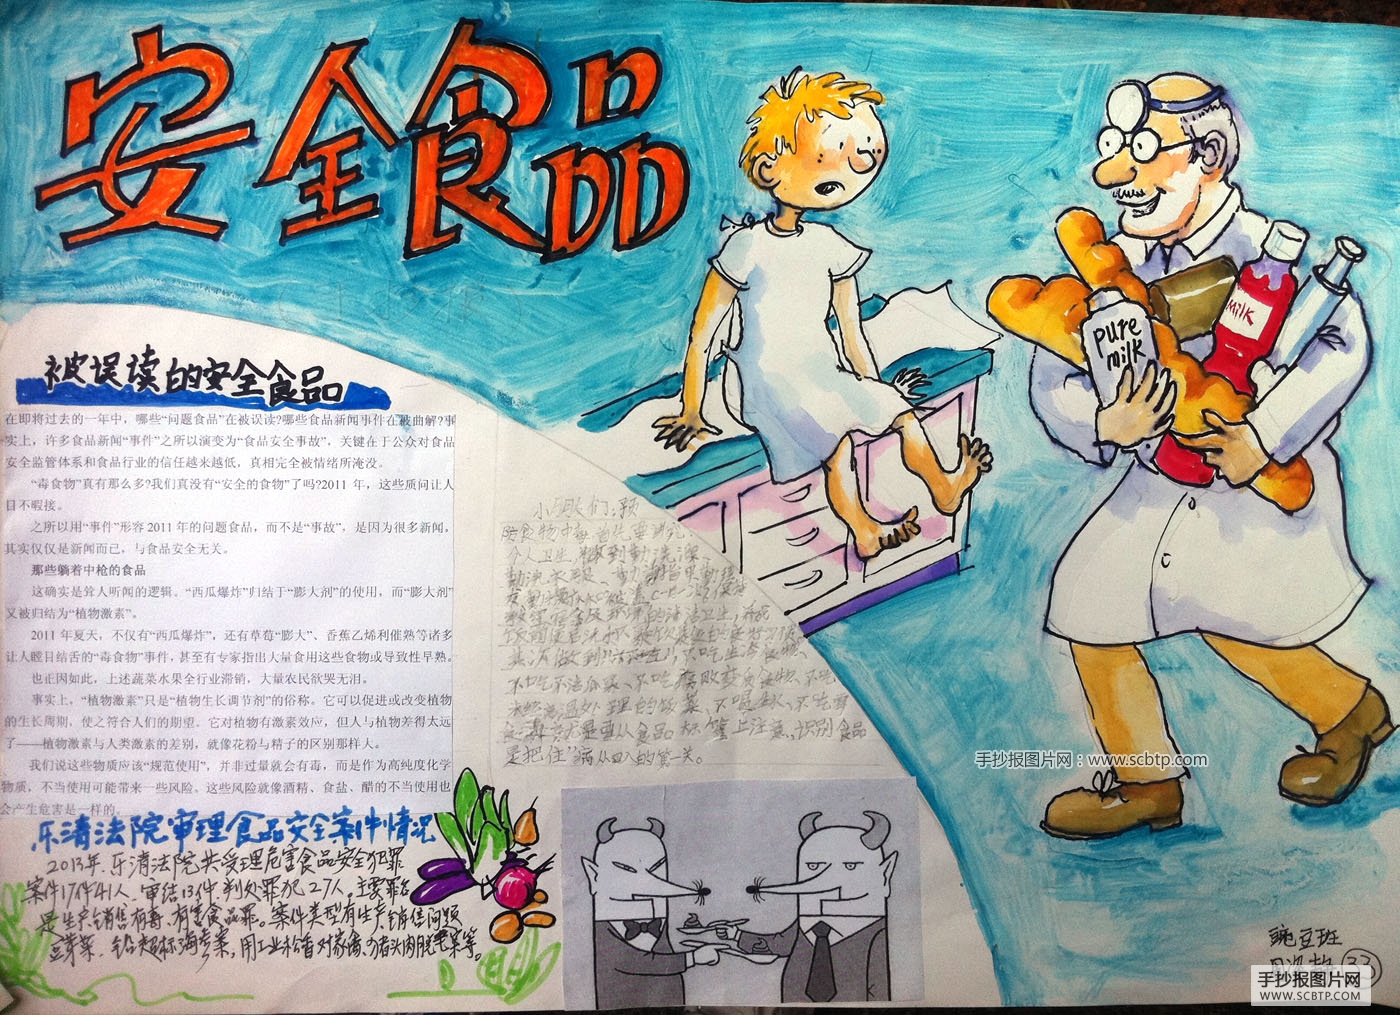 安全食品
被误读的安全食品
在即将过去的一年中，哪些“问题食品”在被误读?哪些食品新闻事件在被曲解?事
实上，许多食品新闻“事件”之所以演变为“食品安全事故”，关键在于公众对食品
安全监管体系和食品行业的信任越来越低，真相完全被情绪所淹没。
“毒食物”真有那么多?我们真没有“安全的食物”了吗?2011 年，这些质问让人
目不暇接。
之所以用“事件”形容 2011 年的问题食品，而不是“事故”，是因为很多新闻，
其实仅仅是新闻而已，与食品安全无关。
那些躺着中枪的食品
这确实是耸人听闻的逻辑。“西瓜爆炸”归结于“膨大剂”的使用，而“膨大剂”
又被归结为“植物激素”。
2011 年夏天，不仅有“西瓜爆炸”，还有草莓“膨大”、香蕉乙烯利催熟等诸多
让人瞠目结舌的“毒食物”事件，甚至有专家指出大量食用这些食物或导致性早熟。
也正因如此，上述蔬菜水果全行业滞销，大量农民欲哭无泪。
事实上，“植物激素”只是“植物生长调节剂”的俗称。它可以促进或改变植物
的生长周期，使之符合人们的期望。它对植物有激素效应，但人与植物差得太远
了——植物激素与人类激素的差别，就像花粉与精子的区别那样大。
我们说这些物质应该“规范使用”，并非过量就会有毒，而是作为高纯度化学
物质，不当使用可能带来一些风险。这些风险就像酒精、食盐、醋的不当使用也
会产生危害是一样的。
乐清法院审理食品安全案件情况
2013年，乐清法院共受理危害食品安全犯罪
案件17件41人，审结13件 判处罪犯27人，主要罪名
是生产销售有毒、有害食品罪。案件类型有生产销售问题
豆芽菜、铅超标海鲜，用工业松香对家禽、猪头肉脱毛案等。
小朋友们：预
防食物中毒首先要讲究
个人卫生，做到勤洗澡、
不吃不洁瓜果、不吃腐败变质食物、不吃
未经高温处理的饭菜、不喝生水、不吃零
是把住“病从口入的第一关。
pure
milk
MILK
手抄报图片网：www.scbtp.com
豌豆班
33
手抄报图片网
WWW.SCBTP.COM